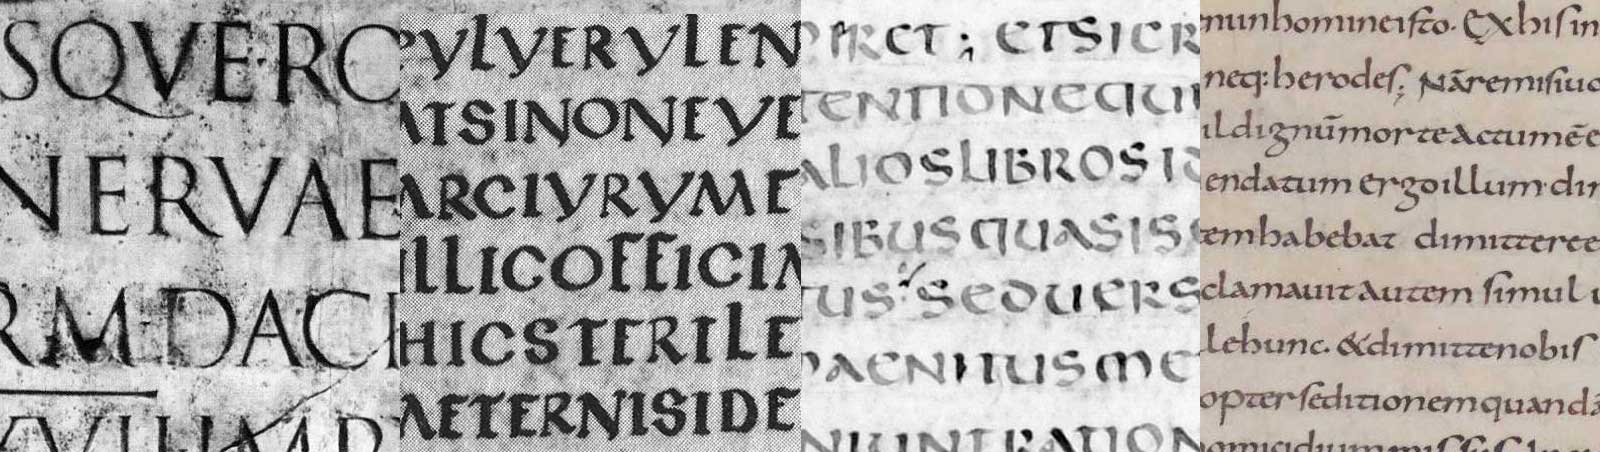 SQVE·RO
NERVAE
RM·DACI
XVII·IMP
PVLVERVLEN
ATSINONEVE
ARCIVRVME
ILLICOFFICIA
HICSTERILE
AETERNISIDE
ETSICR
TENTIONEQUI
ALIOSLIBROSI
SIBUSQUASISS
TUS SEDUERS
PAENITUSME
NIUNTRATION
nunhomineisto. Exhisin
neq: herodes; Nāremisiuo
ildignūmorteactumēe
endatum ergoillum dim
emhabebat dimitteree
clamauitautem simul u
lehunc. &dimittenobis
opterseditionemquandā
omicidiummissusin